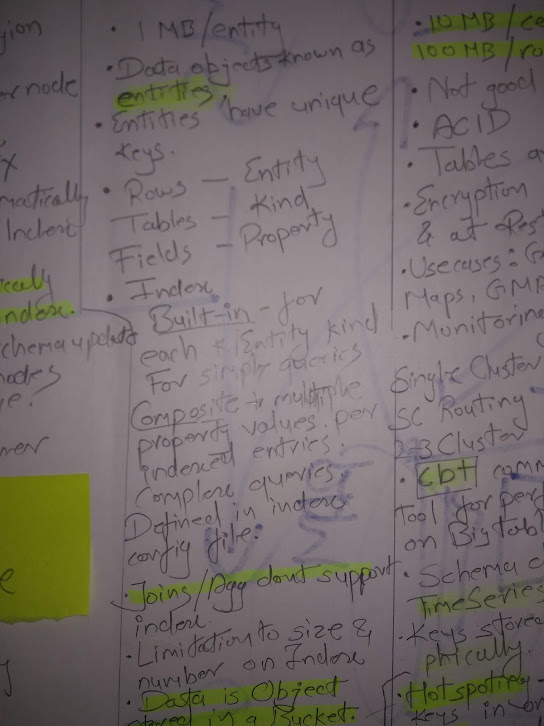 gion
or node
matically
Indent
cally
index.
schema update
nodes
ge?
ner
e
• 1 MB/entity
• Data objects known as
entities
• Entities have unique
keys.
• Rows — Entity
Tables — Kind
Fields — Property
• Index
Built-in - for
each Entity kind
For simple queries
Composite multiple
property values per
indexed entries.
Complex queries
Defined in index
config file.
• Joins/Agg dont support
index
• Limitation to size &
number on Index
• Data is Object
stored in a Bucket.
• 10 MB/ce
100 MB/ro
• Not good
• ACID
• Tables a
• Encryption
& at Rest
• Usecases: G
Maps, GM
• Monitoring
Single Cluster
SC Routing
2-3 Cluster
• cbt comm
Tool for perf
on Bigtabl
• Schema c
TimeSeries
• Keys stored
phically.
• Hotspotting -
Keys in or